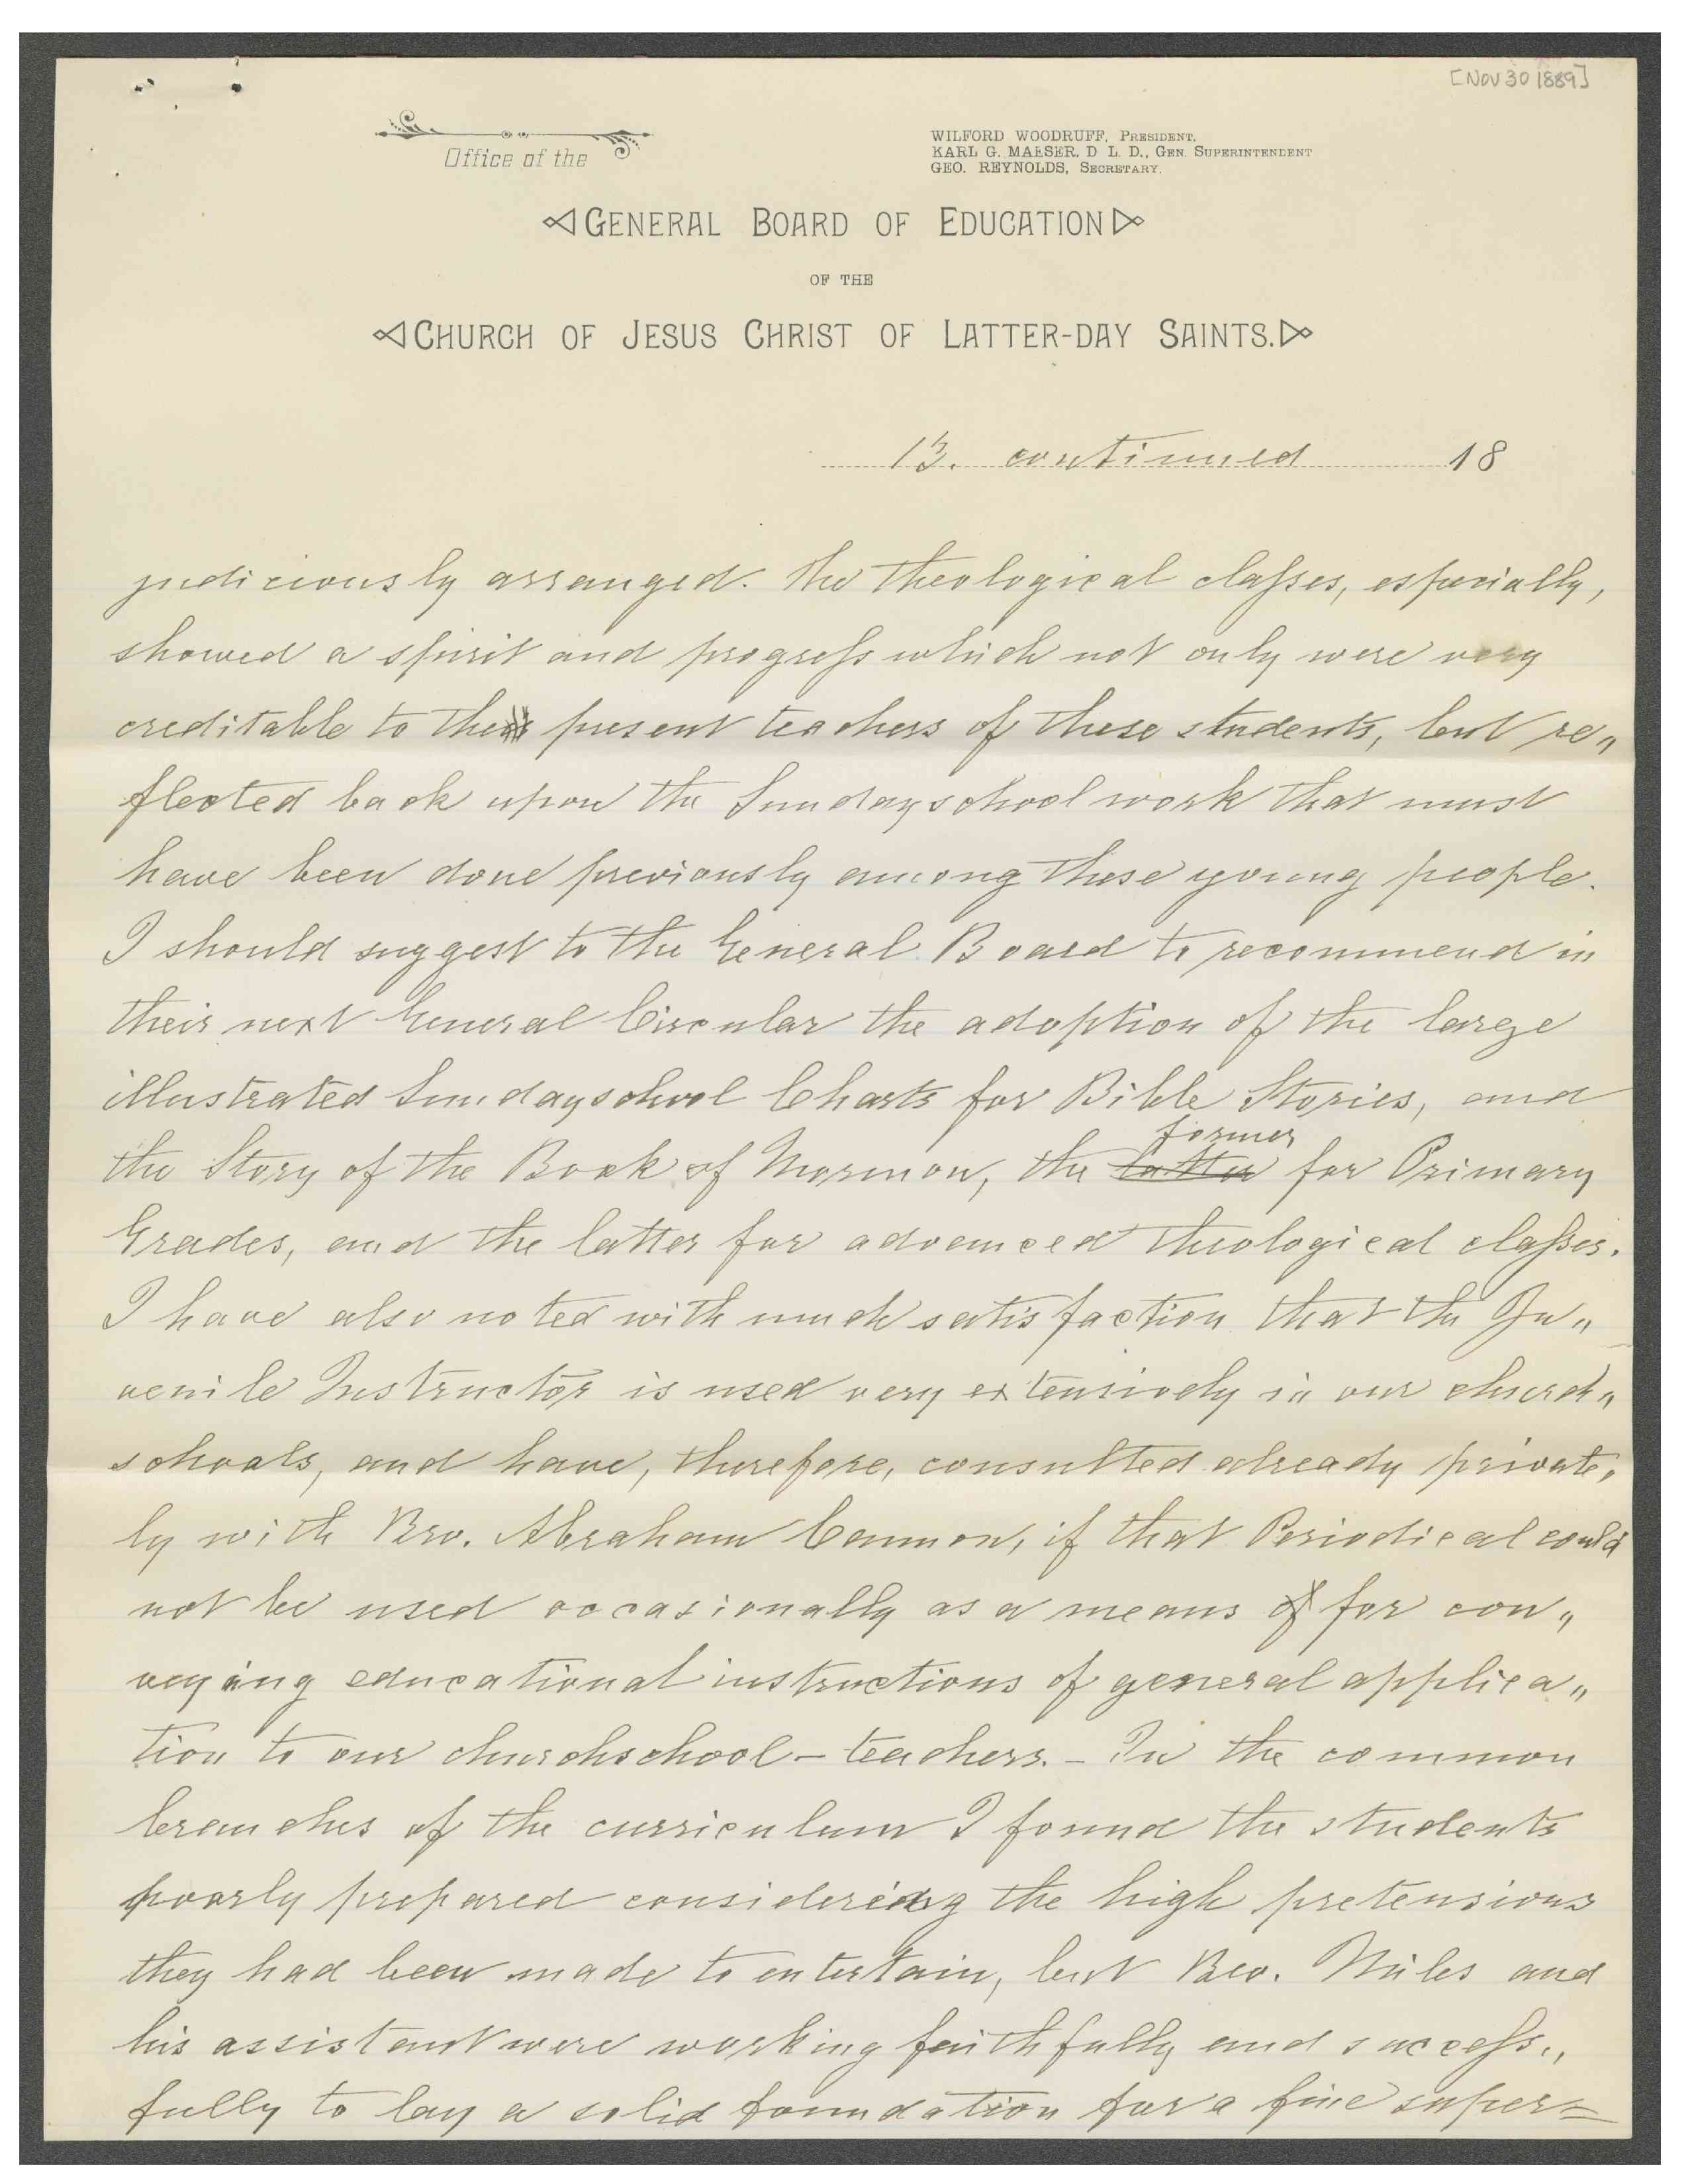 [NOV 30 1889]
Office of the
WILFORD WOODRUFF, PRESIDENT.
KARL G. MAESER, D L. D., GEN. SUPERINTENDENT
GEO. REYNOLDS, SECRETARY.
GENERAL BOARD OF EDUCATION
OF THE
CHURCH OF JESUS CHRIST OF LATTER-DAY SAINTS.
13. continued 18
judiciously arranged. The theological classes, especially,
showed a spirit and progress which not only were very
creditable to the present teachers of these students, but re„
flected back upon the Sundayschool work that must
have been done previously among these young people.
I should suggest to the General Board to recommend in
their next General Circular the adoption of the large
illustrated Sundayschool Charts for Bible Stories, and
the Story of the Book of Mormon, the latter former for Primary
Grades, and the latter for advanced theological classes.
I have also noted with much satisfaction that the Ju„
venile Instructor is used very extensively in our church„
schools, and have, therefore, consulted already private„
ly with Bro. Abraham Cannon, if that Periodical could
not be used occasionally as a means of for con„
veying educational instructions of general applica„
tion to our churchschool-teachers. - In the common
branches of the curriculum I found the students
poorly prepared considering the high pretensions
they had been made to entertain, but Bro. Miles and
his assistant were working faithfully and success„
fully to lay a solid foundation for a fine super=